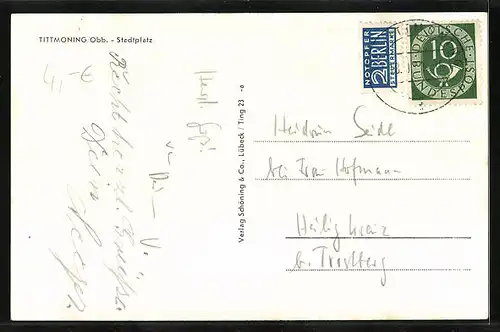 TITTMONING Obb. - Stadtplatz
Recht herzl. Grüße
Dein
Herzl. Grüße
Verlag Schöning & Co., Lübeck / Ting 23 -a
NOTOPFER
2 BERLIN
STEUERMARKE
DEUTSCHE BUNDESPOST
10
Heidrun Seidl
bei Frau Hofmann
Heiligkreuz
b. Trostberg